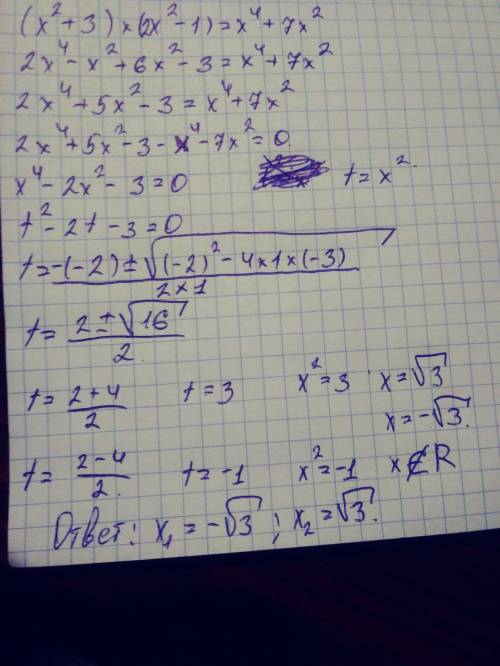 (x² + 3) × (2x² - 1) = x⁴ + 7x²
2x⁴ - x² + 6x² - 3 = x⁴ + 7x²
2x⁴ + 5x² - 3 = x⁴ + 7x²
2x⁴ + 5x² - 3 - x⁴ - 7x² = 0
x⁴ - 2x² - 3 = 0 t = x².
t² - 2t - 3 = 0
t = -(-2) ± √(-2)² - 4×1×(-3) / 2×1
t = 2 ± √16 / 2.
t = 2+4 / 2 t = 3 x² = 3 x = √3
x = -√3.
t = 2-4 / 2. t = -1 x² = -1 x ∉ R
Ответ: x₁ = -√3 ; x₂ = √3.